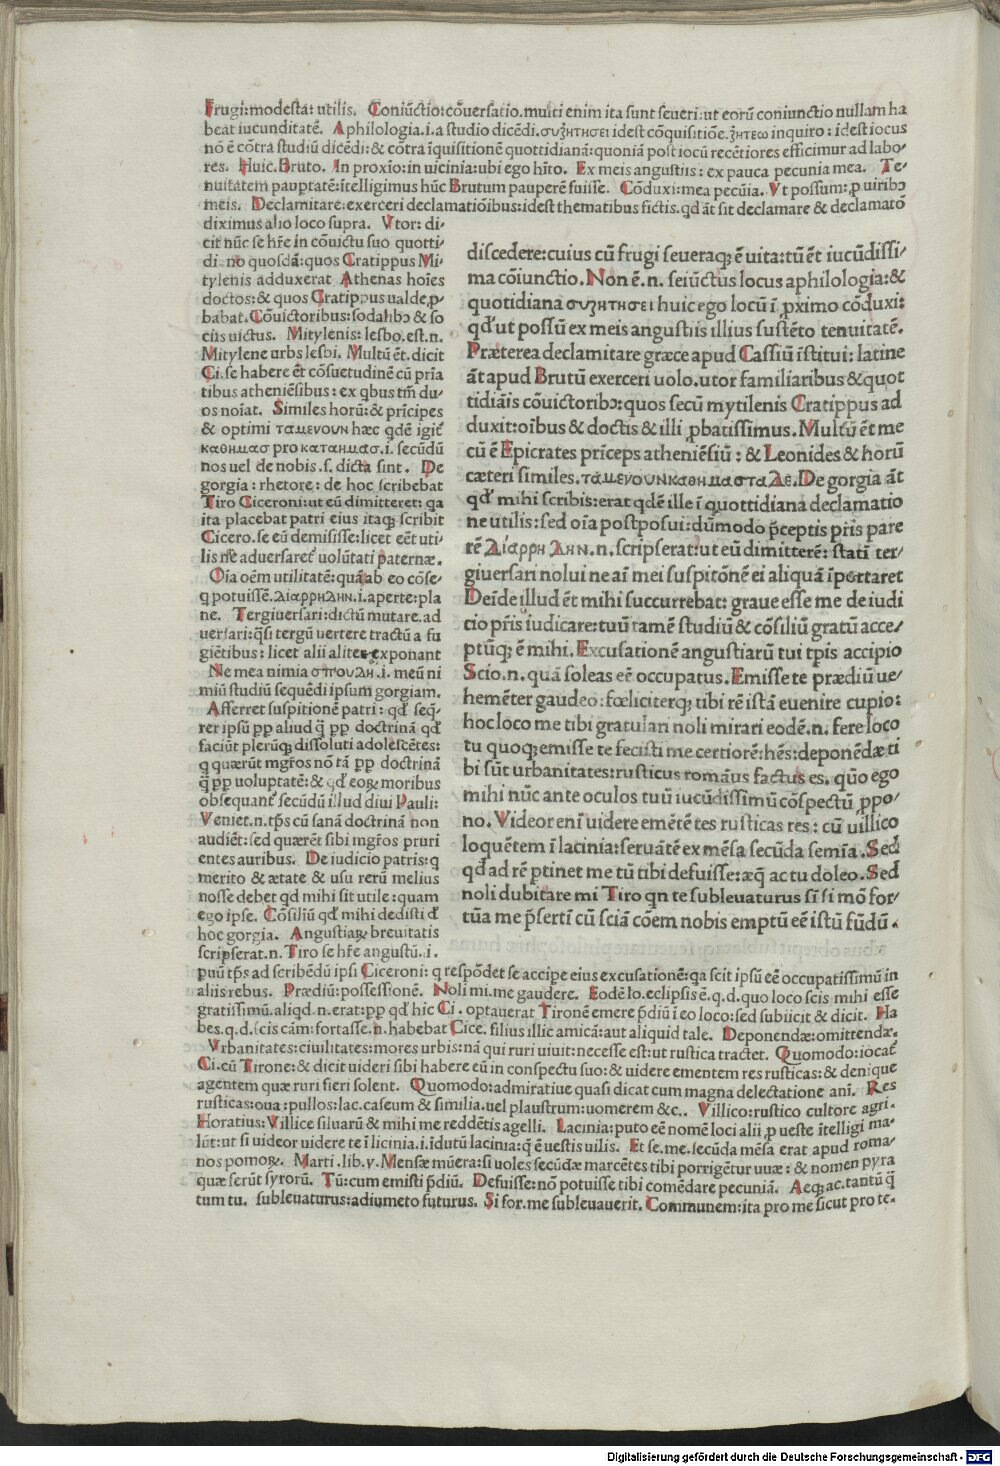 Frugi:modesta: utilis. Coniūctio:cōuersatio.multi enim ita sunt seueri:ut eorū coniunctio nullam ha
beat iucunditatē. Aphilologia.i.a studio dicēdi.συζητησει idest cōquisitiōe.ζητεω inquiro: idest iocus
nō ē cōtra studiū dicēdi: & cōtra īquisitionē quottidianā: quoniā post iocū recētiores efficimur ad labo-
res. Huic.Bruto. In proxīo: in uicinia: ubi ego hīto. Ex meis angustiis: ex pauca pecunia mea. Te-
nuitatem paupertatē: ītelligimus hūc Brutum pauperē fuisse. Cōduxi: mea pecūia. Vt possum: p uiribꝰ
meis. Declamitare: exerceri declamatiōibus: idest thematibus fictis. qd āt sit declamare & declamatō
diximus alio loco supra. Vtor: di-
cit nūc se hr̄e in cōuictu suo quotti-
di no quosdā: quos Cratippus Mi-
tylenis adduxerat Athenas hoīes
doctos: & quos Cratippus ualde ,p-
babat. Cōuictoribus: sodalibꝰ & so
ciis uictus. Mitylenis: lesbo.est.n.
Mitylene urbs lesbi. Multū ēt. dicit
Ci. se habere ēt cōsuetudinē cū prīa
tibus atheniēsibus: ex qbus tm̄ du-
os noīat. Similes horū: & prīcipes
& optimi ταμενουν hæc qdē igit̄
καθημασ pro καταημασ.i. secūdū
nos uel de nobis.s. dicta sint. De
gorgia: rhetore: de hoc scribebat
Tiro Ciceroni: ut eū dimitteret: qa
ita placebat patri eius itaq; scribit
Cicero. se eū demisisse: licet eēt uti-
lis ne aduersaret̄ uolūtati paternæ.
Oīa oēm utilitatē: quā ab eo cōse-
q potuisse. διαρρηδην.i. aperte: pla
ne. Tergiuersari: dictū mutare. ad
uersari: q̄si tergū uertere tractū a fu
giētibus: licet alii aliter exponant
Ne mea nimia σπουδη.i. meū ni
miū studiū sequēdi ipsum gorgiam.
Afferret suspitionē patri: qd̄ seq̄-
rer ipsū pp aliud q̄ pp doctrinā qd̄
faciūt plerūq; dissoluti adolescētes:
q quærūt mgr̄os nō tā pp doctrinā
q̄ pp uoluptatē: & qd̄ eorꝝ moribus
obsequant̄ secūdū illud diui Pauli:
Veniet.n.tp̄s cū sanā doctrinā non
audiēt: sed quærēt sibi mgr̄os pruri
entes auribus. De iudicio patris: q
merito & ætate & usu rerū melius
nosse debet qd mihi sit utile: quam
ego ipse. Cōsiliū qd̄ mihi dedisti d̄
hoc gorgia. Angustiaꝝ breuitatis
scripserat.n. Tiro se hr̄e angustū.i.
discedere: cuius cū frugi seueraq; ē uita: tū ēt iucūdissi-
ma cōiunctio. Non ē.n. seiūctus locus aphilologia: &
quotidiana συζητησει huic ego locū ī pximo cōduxi:
qd̄ ut possū ex meis angustiis illius sustēto tenuitatē.
Præterea declamitare græce apud Cassiū īstitui: latine
āt apud Brutū exerceri uolo. utor familiaribus & quot
tidiāis cōuictoribꝰ: quos secū mytilenis Cratippus ad
duxit: oībus & doctis & illi pbatissimus. Multū ēt me
cū ē Epicrates prīceps atheniēsiū: & Leonides & horū
cæteri similes. ταμενουνκαθημασταδε. De gorgia āt
qd̄ mihi scribis: erat qdē ille ī quottidiana declamatio
ne utilis: sed oīa postposui: dūmodo pceptis pr̄is pare
rē διαρρηδην.n. scripserat: ut eū dimitterē: statī ter-
giuersari nolui ne aī mei suspitōnē ei aliquā īportaret
Deīde illud ēt mihi succurrebat: graue esse me de iudi
cio pr̄is iudicare: tuū tamē studiū & cōsiliū gratū acce-
ptūq; ē mihi. Excusationē angustiarū tui tp̄is accipio
Scio.n. quā soleas eē occupatus. Emisse te prædiū ue-
hemēter gaudeo: fœliciterq; tibi rē istā euenire cupio:
hoc loco me tibi gratulari noli mirari eodē.n. fere loco
tu quoq; emisse te fecisti me certiorē: hēs: deponēdæ ti
bi sūt urbanitates: rusticus romāus factus es. quō ego
mihi nūc ante oculos tuū iucūdissimū cōspectū ppo-
no. Videor enī uidere emētē tes rusticas res: cū uillico
loquētem ī lacinia: seruātē ex mēsa secūda semīa. Sed
qd̄ ad rē ptinet me tū tibi defuisse: æq̄ ac tu doleo. Sed
noli dubitare mi Tiro qn te subleuaturus sī si mō for-
tūa me p̄serti cū sciā cōem nobis emptū eē istū fūdū.
puū tp̄s ad scribēdū ipsi Ciceroni: q respōdet se accipe eius excusationē: qa scit ipsū eē occupatissimū in
aliis rebus. Prædiū: possessionē. Noli mi. me gaudere. Eodē lo. eclipsis ē. q.d. quo loco scis mihi esse
gratissimū. aliqd.n. erat: pp qd̄ hic Ci. optauerat Tironē emere p̄diū ī eo loco: sed subiicit & dicit. Ha
bes. q.d. scis cām: fortasse.n. habebat Cice. filius illic amicā: aut aliquid tale. Deponendæ: omittendæ.
Vrbanitates: ciuilitates: mores urbis: nā qui ruri uiuit: necesse est: ut rustica tractet. Quomodo: iocat̄
Ci. cū Tirone: & dicit uideri sibi habere eū in conspectu suo: & uidere ementem res rusticas: & denique
agentem quæ ruri fieri solent. Quomodo: admiratiue quasi dicat cum magna delectatione anī. Res
rusticas: oua: pullos: lac. caseum & similia. uel plaustrum: uomerem &c.. Villico: rustico cultore agri-
Horatius: Villice siluarū & mihi me reddētis agelli. Lacinia: puto eē nomē loci alii p ueste ītelligi ma-
lūt: ut si uideor uidere te ī licinia. i. idutū lacinia: q̄ ē uestis uilis. Et se. me. secūda mēsa erat apud roma-
nos pomoꝝ. Marti. lib. v. Mensæ mūera: si uoles secūdæ marcētes tibi porrigētur uuæ: & nomen pyra
quæ ferūt syrorū. Tū: cum emisti p̄diū. Defuisse: nō potuisse tibi comēdare pecuniā. Aeq; ac. tantū q̄
tum tu. subleuaturus: adiumēto futurus. Si for. me subleuauerit. Communem: ita pro me sicut pro te.
Digitalisierung gefördert durch die Deutsche Forschungsgemeinschaft - DFG